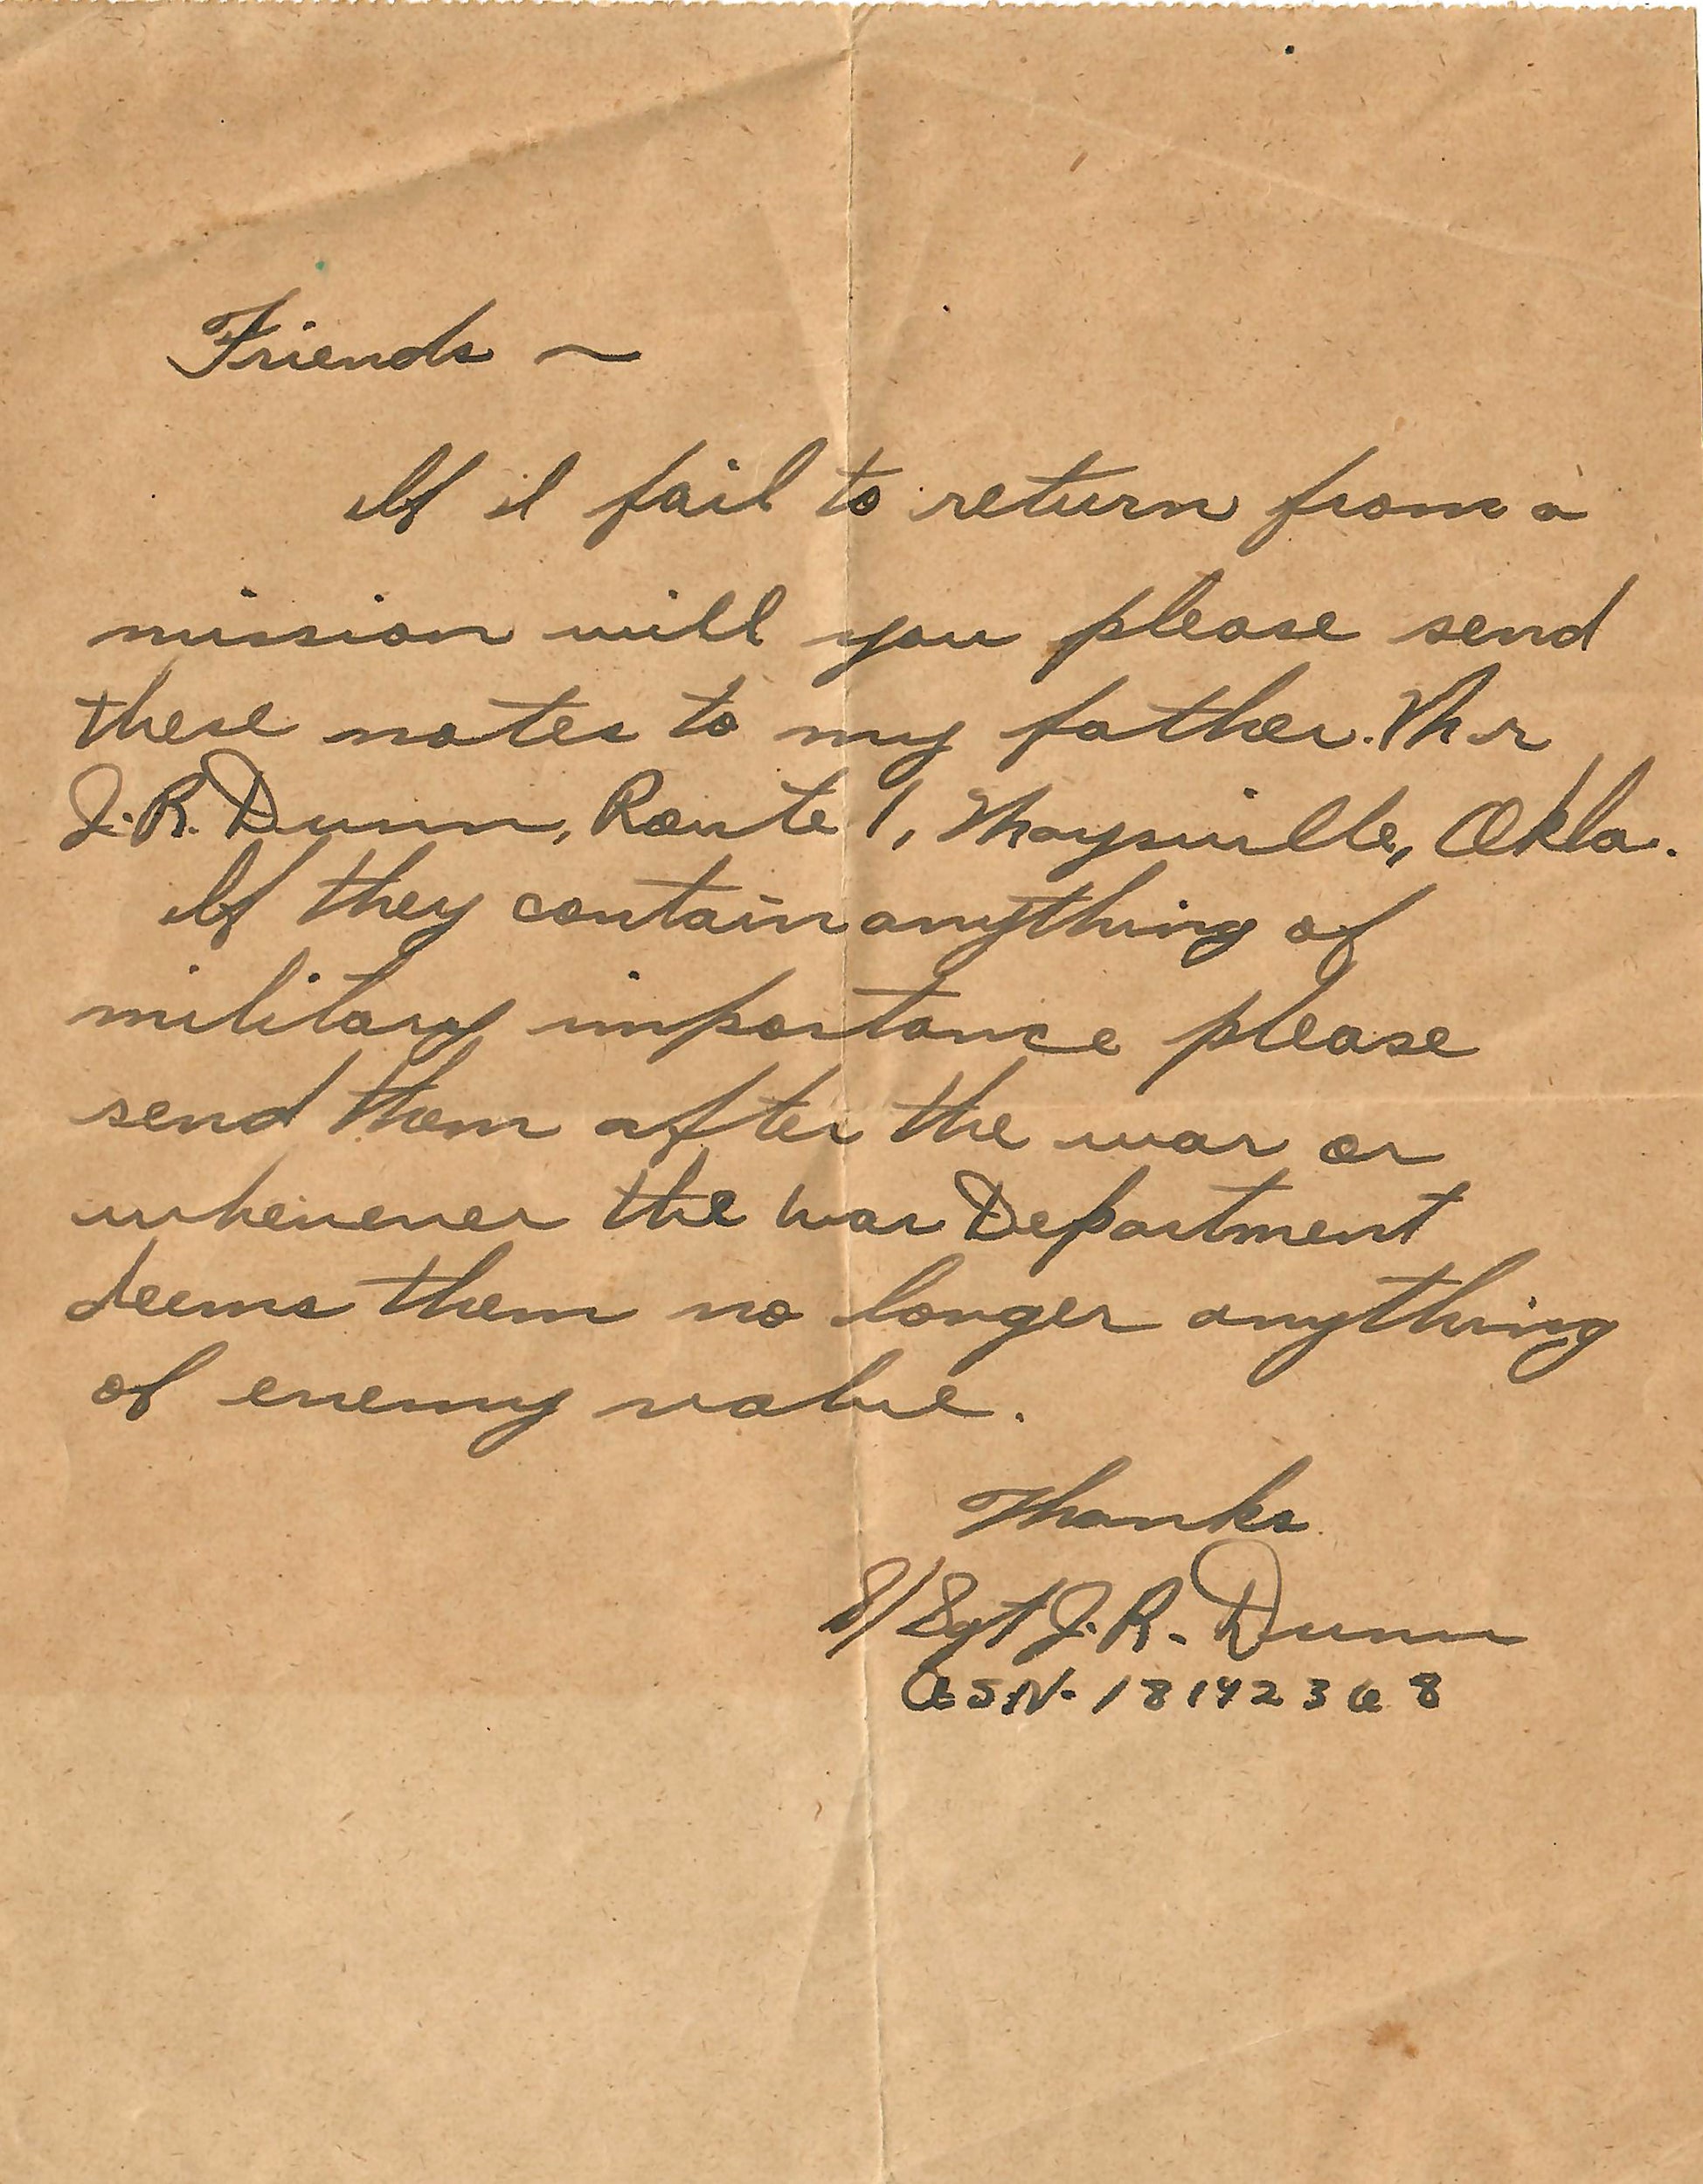 Friends ~
If I fail to return from a
mission will you please send
these notes to my father. Mr
J. R. Dunn, Route 1, Maysville, Okla.
If they contain anything of
military importance please
send them after the war or
whenever the war Department
deems them no longer anything
of enemy value.
Thanks
S/Sgt J. R. Dunn
ASN. 18142368